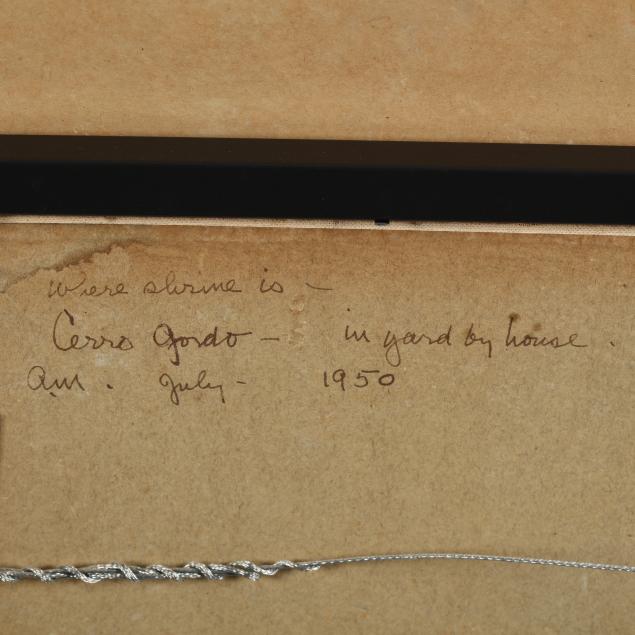 where shrine is —
Cerro Gordo — in yard by house .
A.M. July - 1950